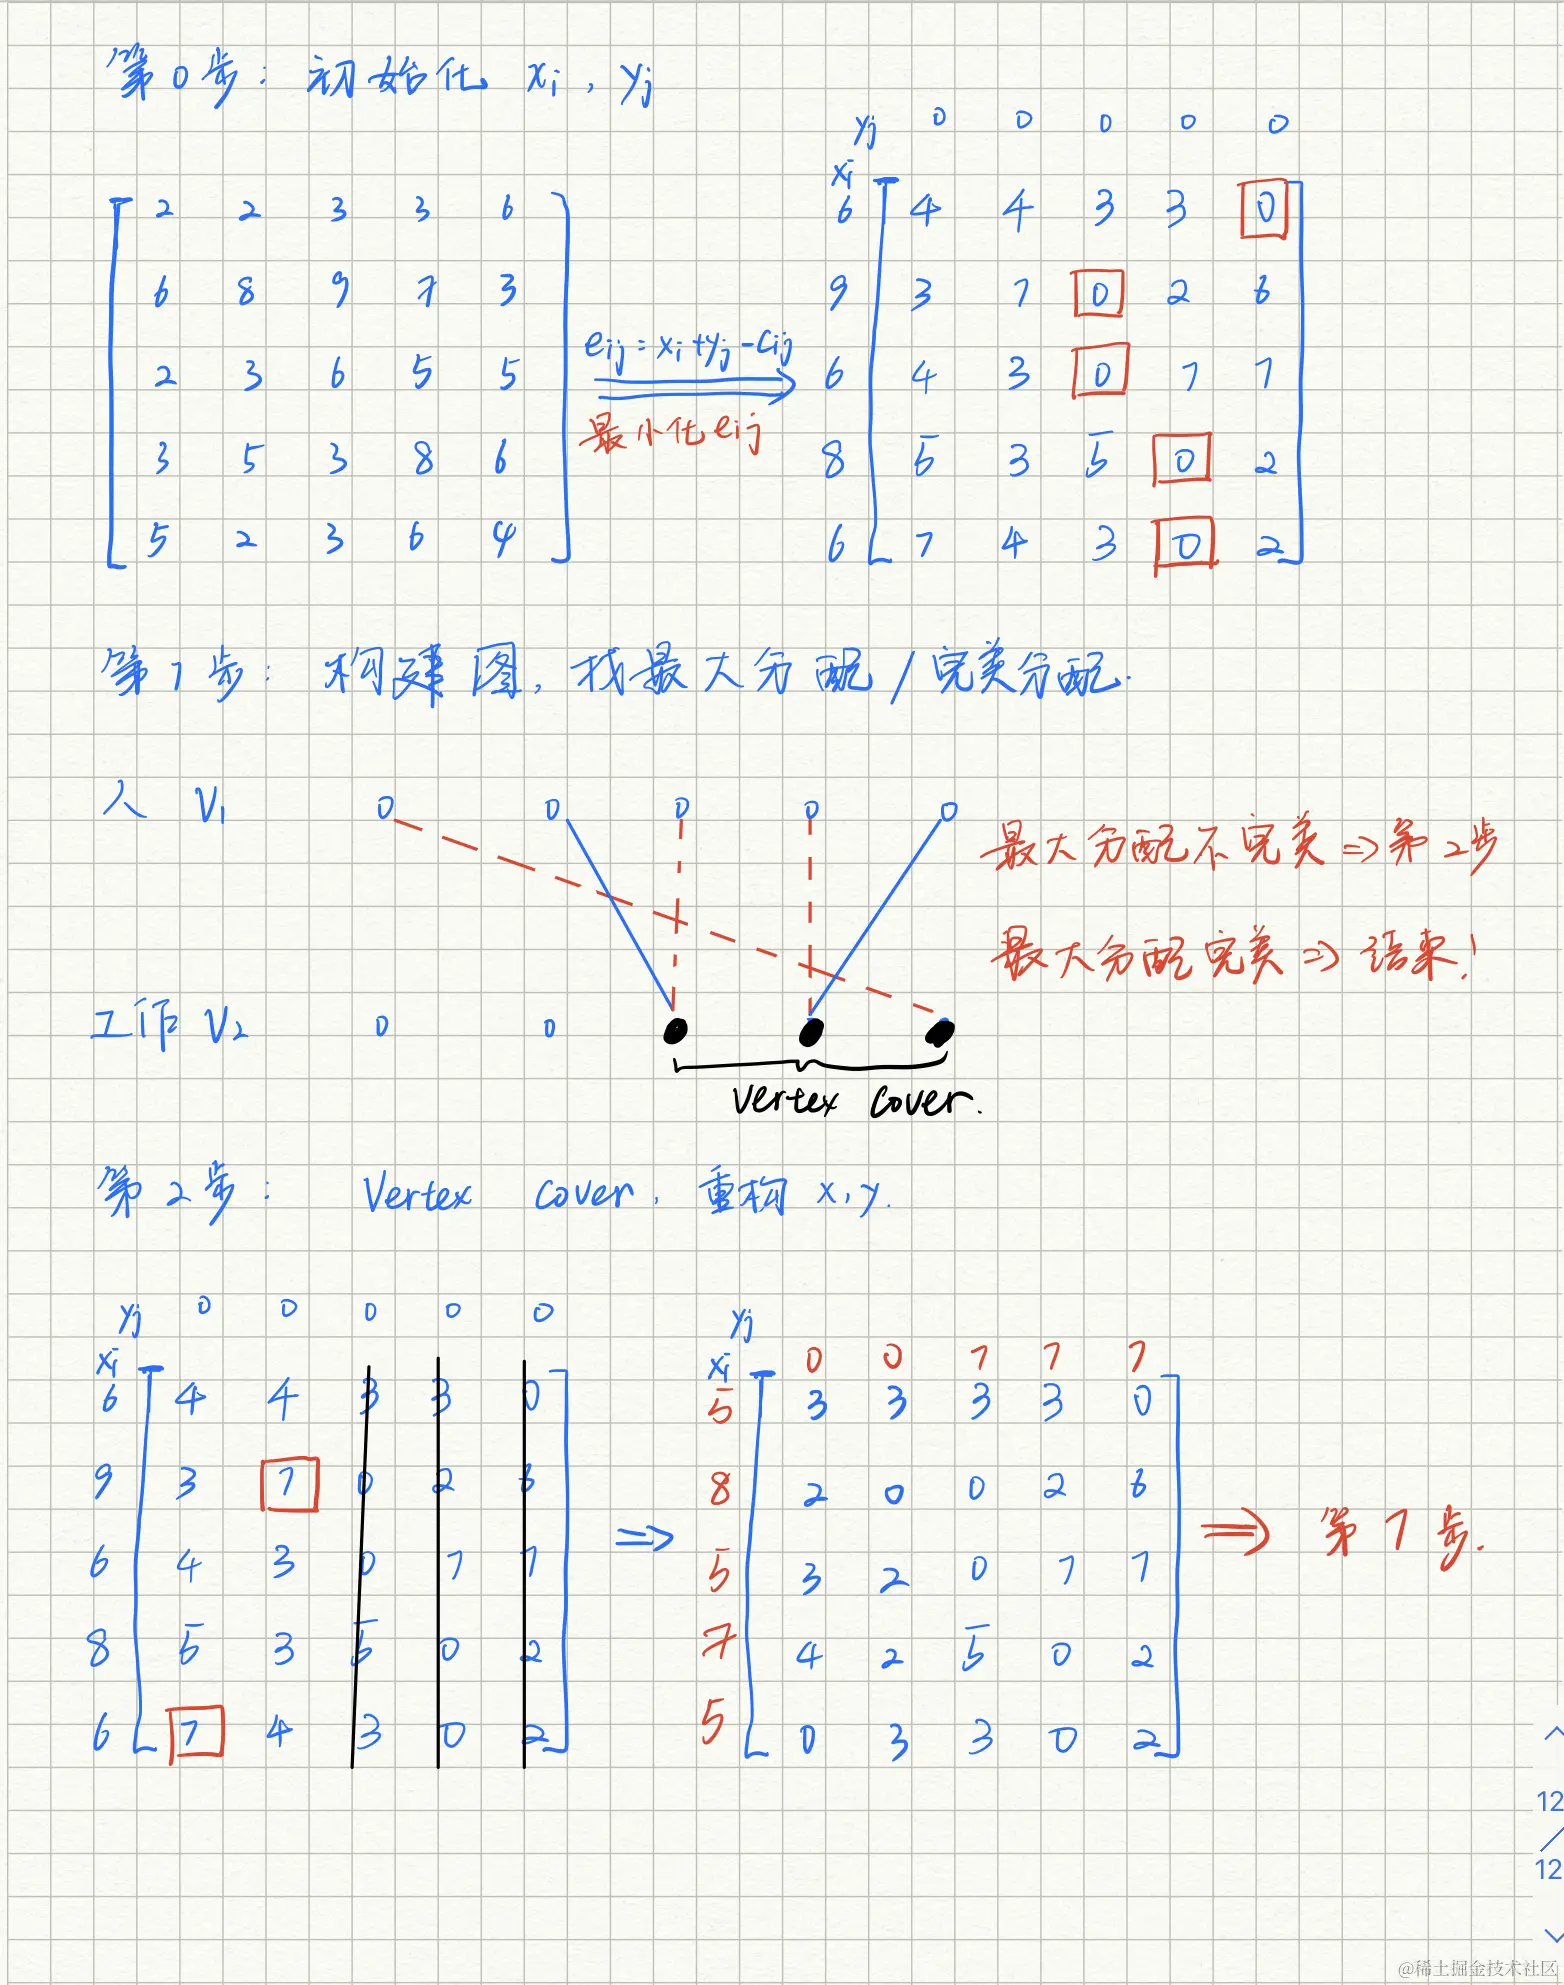 第0步: 初始化 xi, yj
2 2 3 3 6
6 8 9 7 3
2 3 6 5 5
3 5 3 8 6
5 2 3 6 4
eij = xi+yj-cij
最小化eij
yj 0 0 0 0 0
xi
6 4 4 3 3 0
9 3 1 0 2 6
6 4 3 0 1 1
8 5 3 5 0 2
6 1 4 3 0 2
第1步: 构建图, 找最大分配/完美分配.
人 V1 0 0 0 0 0
最大分配不完美 => 第2步
最大分配完美 => 结束!
工作 V2 0 0
Vertex Cover.
第2步: Vertex Cover, 重构 x, y.
yj 0 0 0 0 0
xi
6 4 4 3 3 0
9 3 1 0 2 6
6 4 3 0 1 1
8 5 3 5 0 2
6 1 4 3 0 2
=>
yj
xi 0 0 1 1 1
5 3 3 3 3 0
8 2 0 0 2 6
5 3 2 0 1 1
7 4 2 5 0 2
5 0 3 3 0 2
=> 第1步.
12
/
12
@稀土掘金技术社区